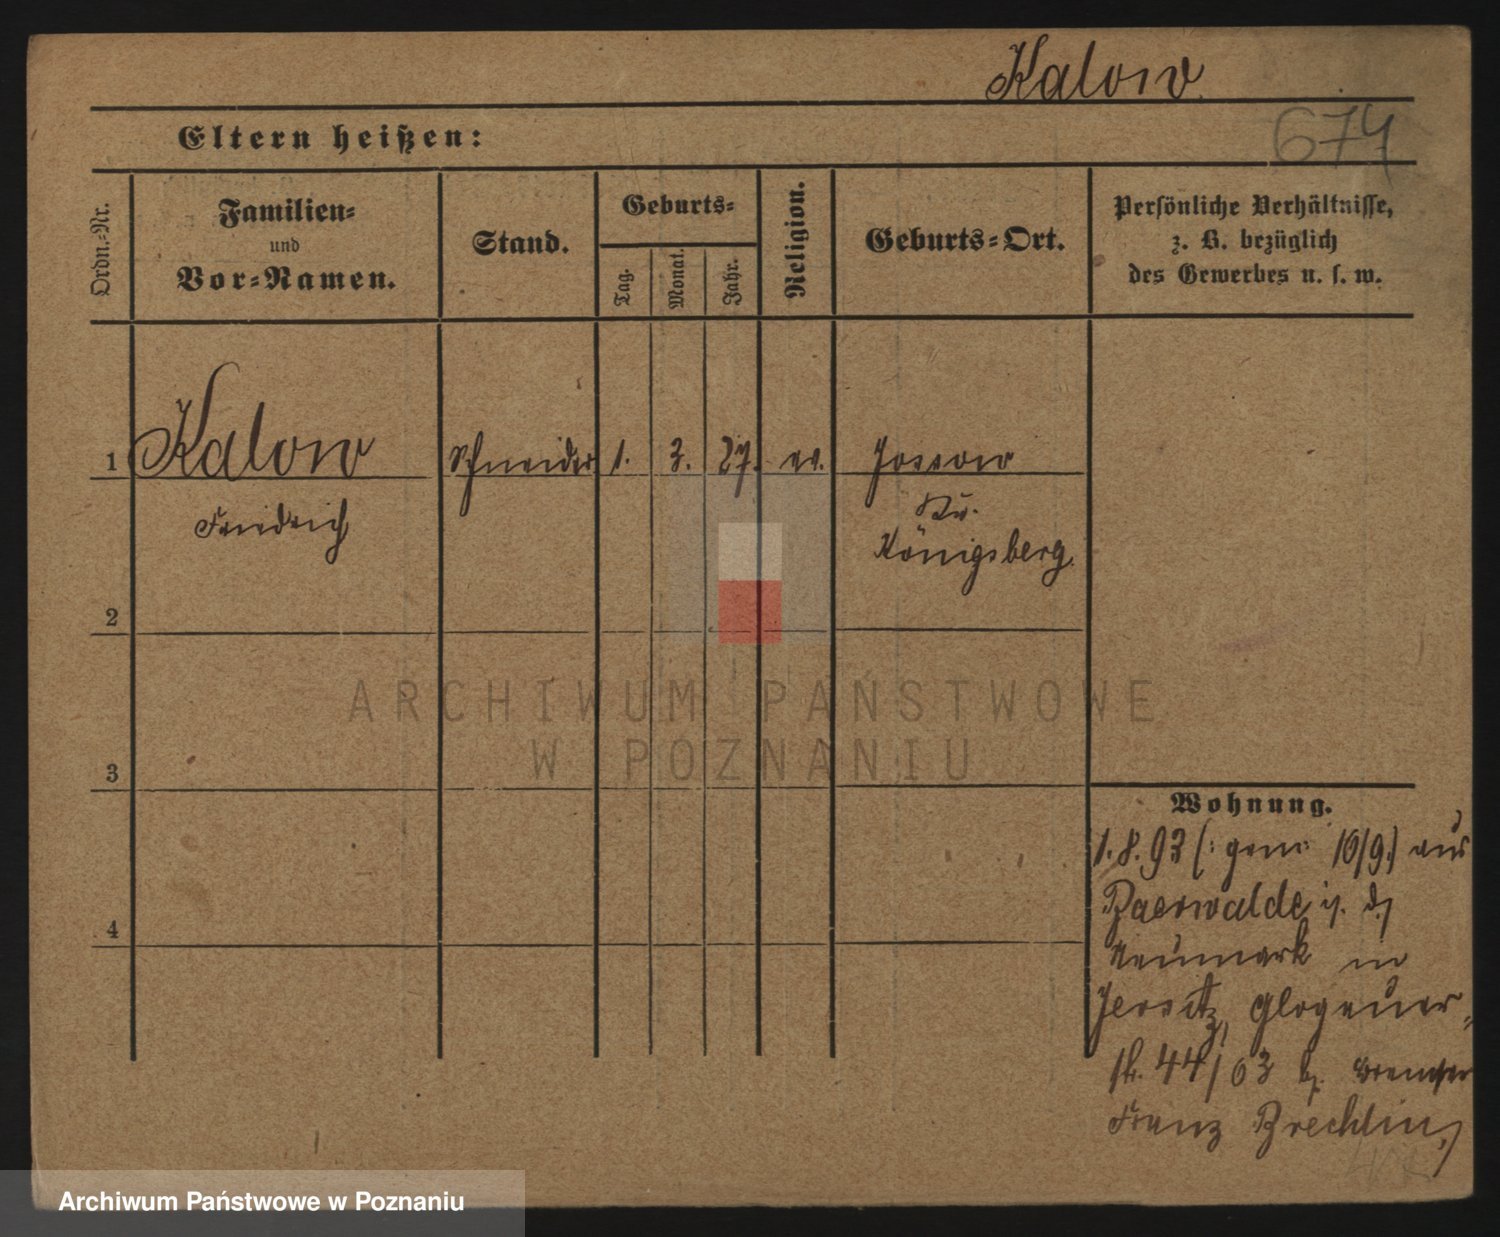 Kalow
674
Eltern heißen:
Ordn.-Nr.
Familien-
und
Vor-Namen.
Stand.
Geburts-
Tag.
Monat.
Jahr.
Religion.
Geburts-Ort.
Persönliche Verhältnisse,
z. B. bezüglich
des Gewerbes u. s. w.
1 Kalow Schneider 1. 3. 27. ev.
Friedrich
Kr.
Königsberg
2
3
4
Wohnung.
1. 8. 93 (: gem: 10/9.) aus
Baerwalde i. d.
Neumark in
Jersitz, Glogauer-
str. 44/63 b.
Franz Brechlin,
ARCHIWUM PAŃSTWOWE
W POZNANIU
Archiwum Państwowe w Poznaniu